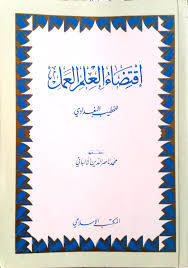 اقتضاء العلم العمل
للخطيب البغدادي
محمد ناصر الدين الألباني
المكتب الإسلامي